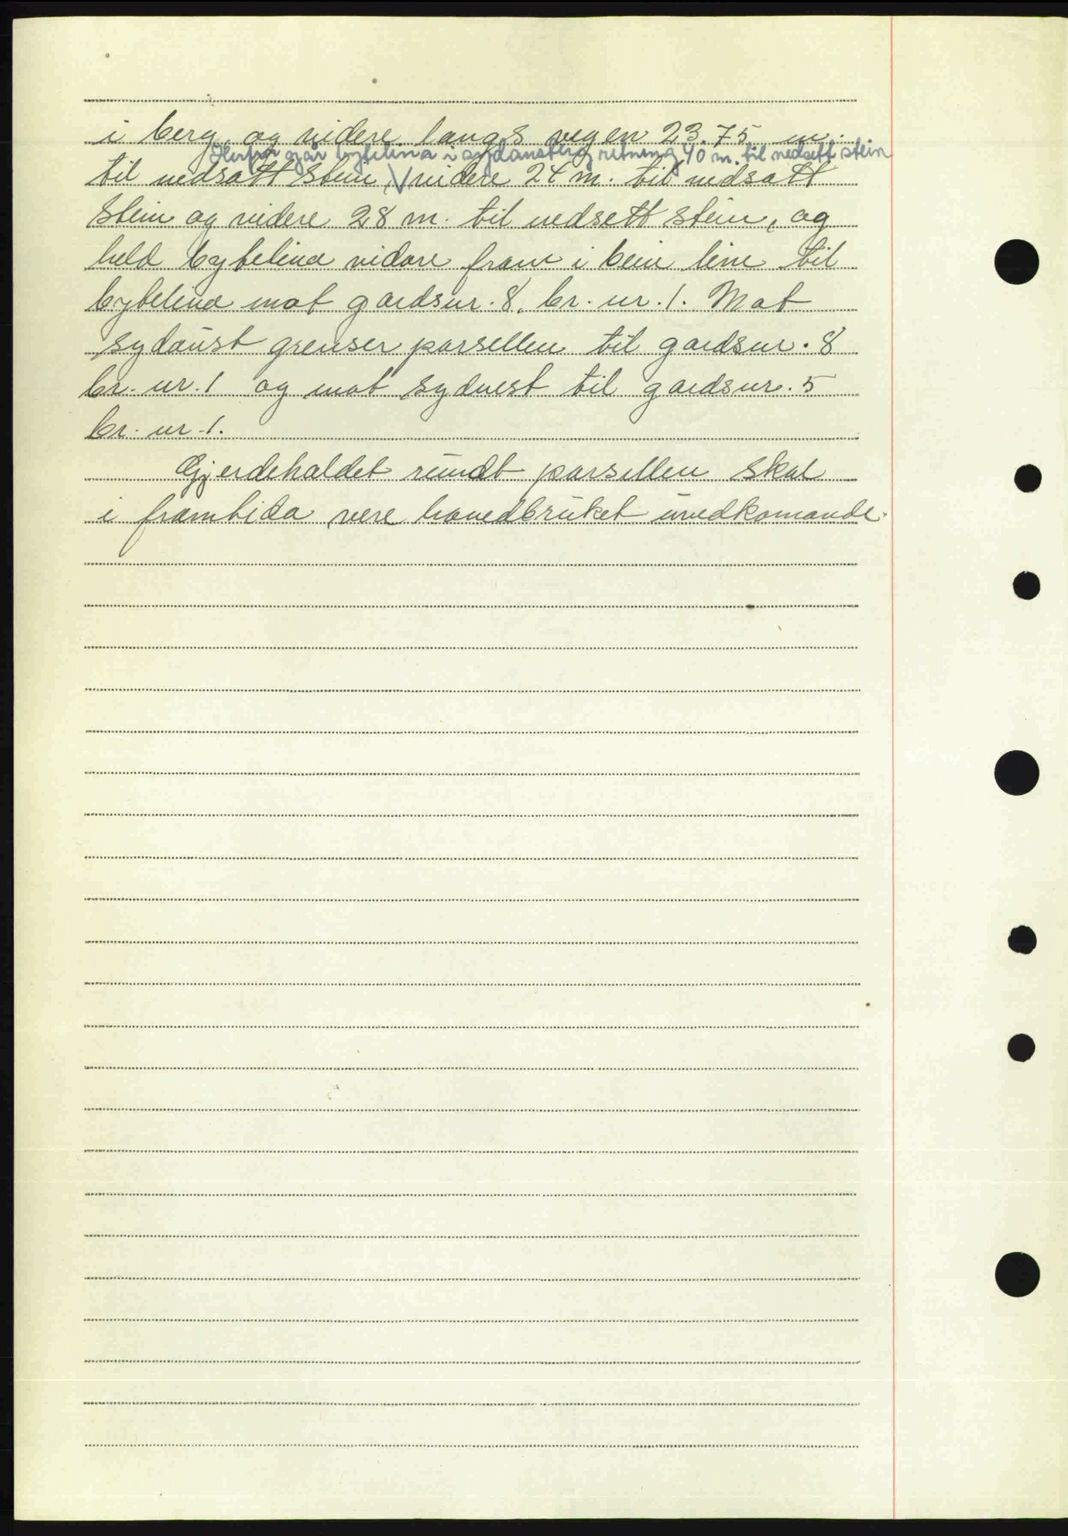 i berg, og videre langs vegen 23.75 m.
Herfra går bytelina i sydaustleg retning 40 m. til nedsett stein
til nedsatt stein, V videre 24 m. til nedsatt
stein og videre 28 m. til nedsett stein, og
held bytelina vidare fram i bein line til
bytelina mot gardsnr. 8, br. nr. 1. Mot
sydaust grenser parsellen til gardsnr. 8
br. nr. 1 og mot sydvest til gardsnr. 5
br. nr. 1.
Gjerdehaldet rundt parsellen skal
i framtida vere hovedbruket uvedkomande.